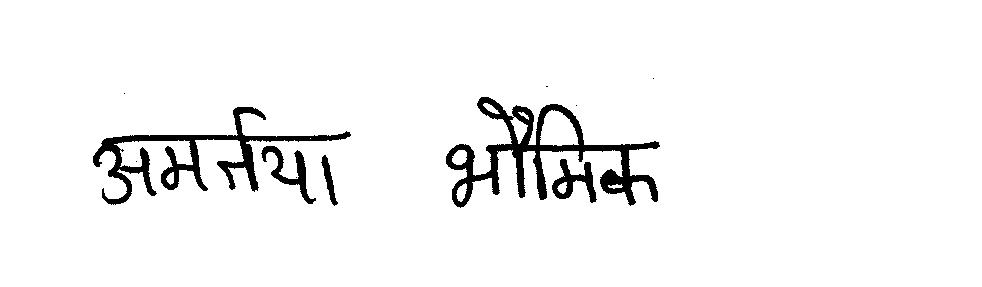 अमर्तया भौमिक